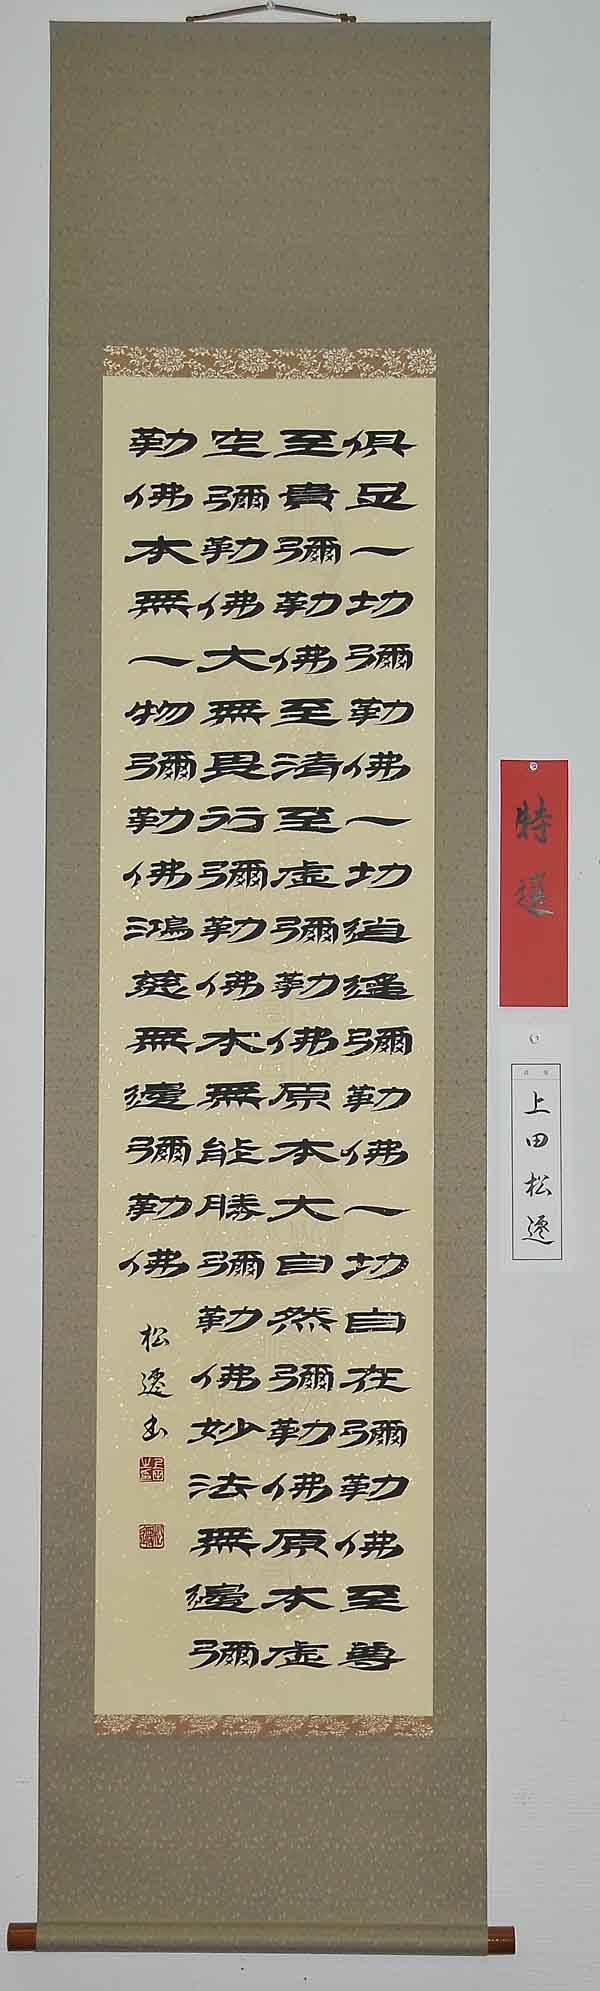 俱足一切彌勒佛一切逍遙彌勒佛一切自在彌勒佛至尊
至貴彌勒佛至清至虛彌勒佛原本大自然彌勒佛原本虛
空彌勒佛大無畏行彌勒佛本無能勝彌勒佛妙法無邊彌
勒佛本無一物彌勒佛鴻慈無邊彌勒佛
松遷書
特選
上田松遷